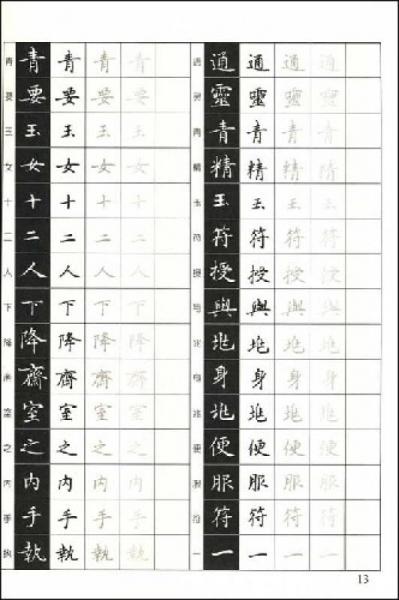 青要玉女十二人下降斋室之内手执
青要玉女十二人下降齋室之内手執
青要玉女十二人下降齋室之内手執
青要玉女十二人下降齋室之内手執
青要玉女十二人下降齋室之内手執
通灵青精玉符授与兆身兆便服符一
通靈青精玉符授與兆身兆便服符一
通靈青精玉符授與兆身兆便服符一
通靈青精玉符授與兆身兆便服符一
通靈青精玉符授與兆身兆便服符一
13